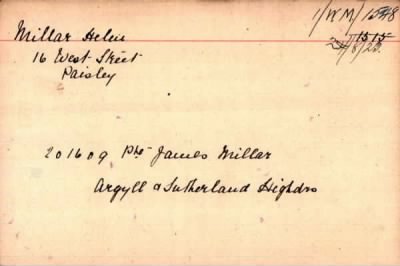 1/WM/1548
1515
24/8/23.
Millar Helen
16 West Street
Paisley
201609 Pte James Millar
Argyll & Sutherland Highdrs